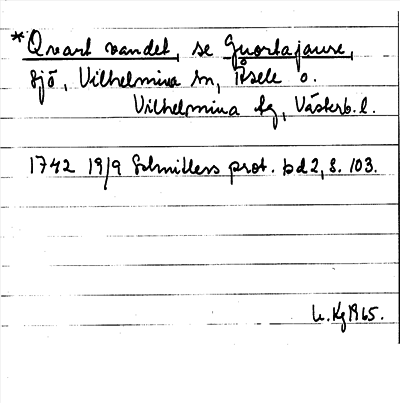 * Qvart vandet, se Guortajaure,
sjö, Vilhelmina sn, Åsele o.
Vilhelmina lg, Västerb. l.
1742 19/9 Schnitlers prot. bd 2, s. 103.
U. Kg 1965.